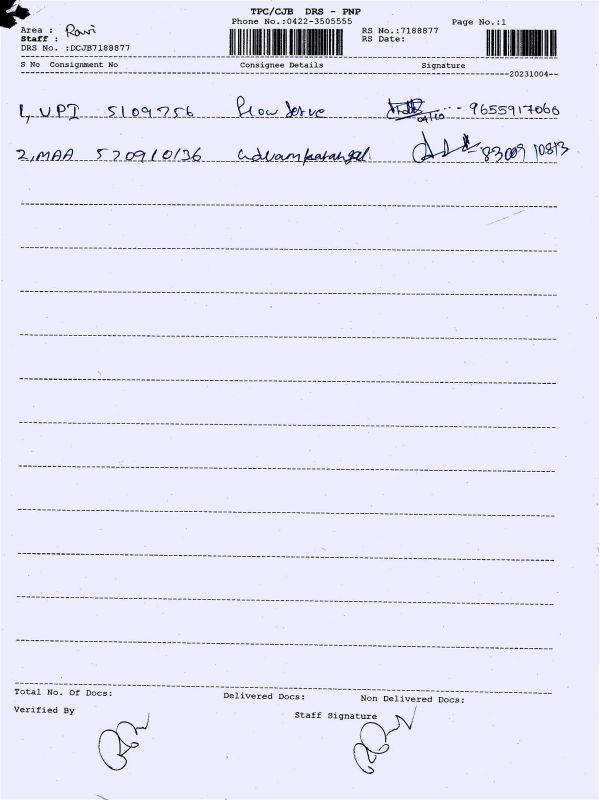 TPC/CJB DRS - PNP
Phone No.:0422-3505555
Page No.:1
Area : Ravi
RS No.:7188877
Staff :
RS Date:
DRS No. :DCJB7188877
S No Consignment No Consignee Details Signature
20231004
1, VPI 5109756 Flow Serve 04/10 9655917066
2, MAA 570910136 83009 10813
Total No. Of Docs: Delivered Docs: Non Delivered Docs:
Verified By
Staff Signature